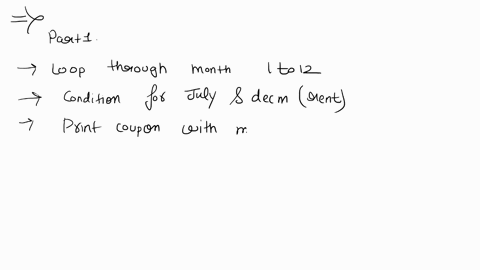 Part 1.
→ Loop through month 1 to 12
→ Condition for July & decm (rent)
→ Print coupon with m